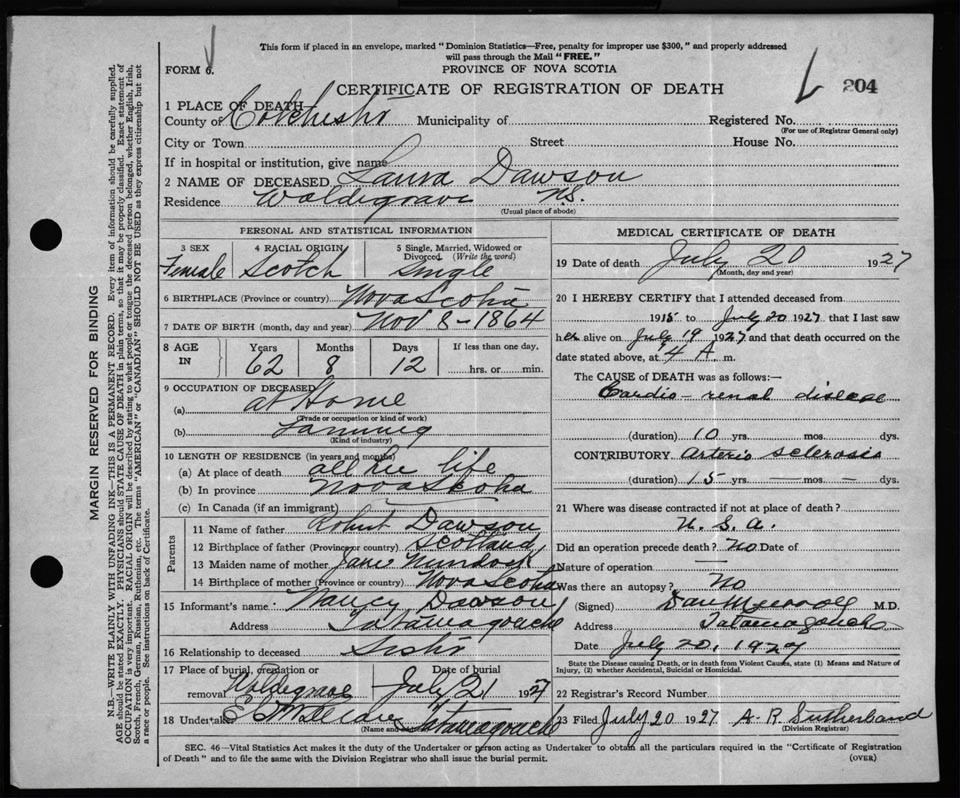 This form if placed in an envelope, marked "Dominion Statistics—Free, penalty for improper use $300," and properly addressed
will pass through the Mail "FREE."
FORM 6.
PROVINCE OF NOVA SCOTIA
CERTIFICATE OF REGISTRATION OF DEATH
204
1 PLACE OF DEATH
County of Colchester Municipality of Registered No.
(For use of Registrar General only)
City or Town Street House No.
If in hospital or institution, give name
2 NAME OF DECEASED Laura Dawson
Residence Waldegrave N.S.
(Usual place of abode)
PERSONAL AND STATISTICAL INFORMATION
3 SEX 4 RACIAL ORIGIN 5 Single, Married, Widowed or
Divorced (Write the word)
Female Scotch Single
6 BIRTHPLACE (Province or country) Nova Scotia
7 DATE OF BIRTH (month, day and year) Nov 8-1864
8 AGE IN Years Months Days If less than one day,
62 8 12 hrs. or min.
9 OCCUPATION OF DECEASED
(a) at Home
(Trade or occupation or kind of work)
(b) Farming
(Kind of industry)
10 LENGTH OF RESIDENCE (in years and months)
(a) At place of death all her life
(b) In province Nova Scotia
(c) In Canada (if an immigrant)
Parents
11 Name of father Robert Dawson
12 Birthplace of father (Province or country) Scotland
13 Maiden name of mother Jane Murdock
14 Birthplace of mother (Province or country) Nova Scotia
15 Informant's name Nancy Dawson
Address Tatamagouche
16 Relationship to deceased Sister
17 Place of burial, cremation or Date of burial
removal Waldegrave July 21 1927
18 Undertaker Tatamagouche
(Name and
MEDICAL CERTIFICATE OF DEATH
19 Date of death July 20 1927
(Month, day and year)
20 I HEREBY CERTIFY that I attended deceased from
1915 to July 20 1927 that I last saw
her alive on July 19 1927 and that death occurred on the
date stated above, at 4 A m.
The CAUSE of DEATH was as follows:—
Cardio-renal disease
(duration) 10 yrs. mos. dys.
CONTRIBUTORY Arterio sclerosis
(duration) 15 yrs. — mos. — dys.
21 Where was disease contracted if not at place of death?
U.S.A.
Did an operation precede death? No Date of
Nature of operation —
Was there an autopsy? No
(Signed) M.D.
Address Tatamagouche
Date July 20, 1927
State the Disease causing Death, or in death from Violent Causes, state (1) Means and Nature of
Injury, (2) whether Accidental, Suicidal or Homicidal.
22 Registrar's Record Number
23 Filed July 20 1927 A. R. Sutherland
(Division Registrar)
SEC. 46—Vital Statistics Act makes it the duty of the Undertaker or person acting as Undertaker to obtain all the particulars required in the "Certificate of Registration
of Death" and to file the same with the Division Registrar who shall issue the burial permit.
(OVER)
MARGIN RESERVED FOR BINDING
N.B.—WRITE PLAINLY WITH UNFADING INK—THIS IS A PERMANENT RECORD. Every item of information should be carefully supplied.
AGE should be stated EXACTLY. PHYSICIANS should STATE CAUSE OF DEATH in plain terms, so that it may be properly classified. Exact statement of
OCCUPATION is very important. RACIAL ORIGIN will be described by stating to what people or tongue the deceased person belonged, whether English, Irish,
Scotch, French, German, Russian, Ruthenian, etc. The terms "AMERICAN" or "CANADIAN" SHOULD NOT BE USED as they express citizenship but not
a race or people. See instructions on back of Certificate.